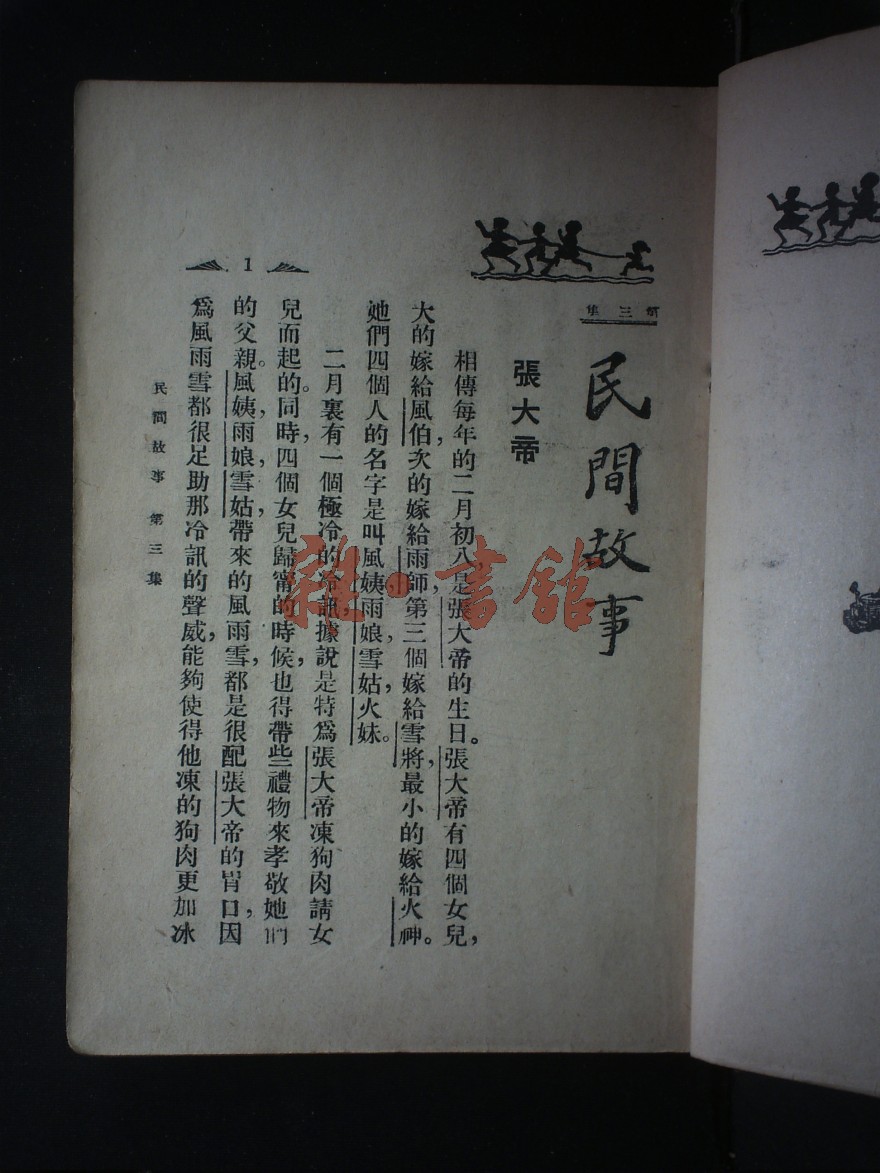 第三集
民間故事
張大帝
相傳每年的二月初八，是張大帝的生日。張大帝有四個女兒，
大的嫁給風伯，次的嫁給雨師，第三個嫁給雪將，最小的嫁給火神。
她們四個人的名字是叫風姨，雨娘，雪姑，火妹。
二月裏有一個極冷的冷訊，據說是特爲張大帝凍狗肉請女
兒而起的。同時，四個女兒歸甯的時候，也得帶些禮物來孝敬她們
的父親。風姨，雨娘，雪姑，帶來的風雨雪，都是很配張大帝的胃口，因
爲風雨雪都很足助那冷訊的聲威，能夠使得他凍的狗肉更加冰
1
民間故事 第三集
雜·書館